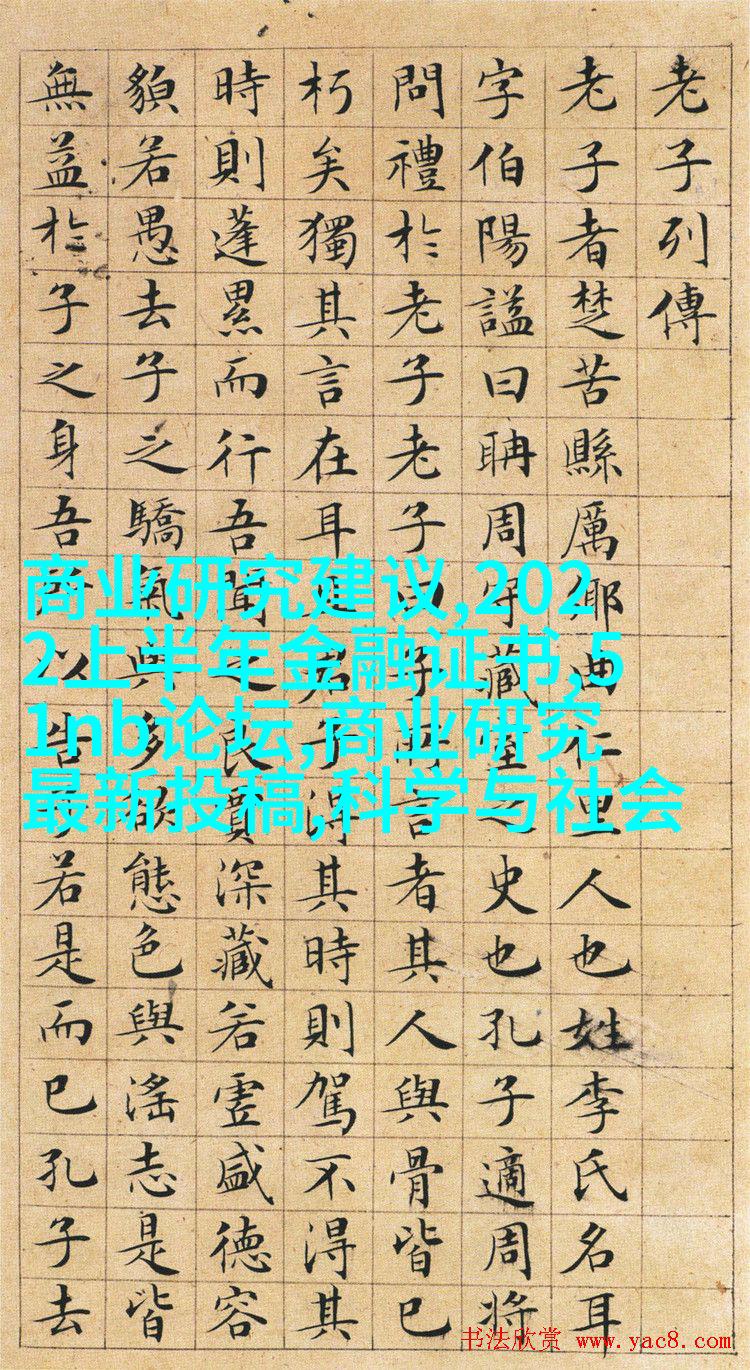 老子列傳
老子者楚苦縣厲鄉曲仁里人也姓李氏名耳
字伯陽謚曰聃周守藏室之史也孔子適周將
問禮於老子老子曰子所言者其人與骨皆已
朽矣獨其言在耳且君子得其時則駕不得其
時則蓬累而行吾聞之良賈深藏若虛盛德容
貌若愚去子之驕氣與多欲態色與淫志是皆
無益於子之身吾所以告子若是而已孔子去
商业研究建议,202
2上半年金融证书,5
1nb论坛,商业研究
最新投稿,科学与社会
书法欣赏 www.yac8.com